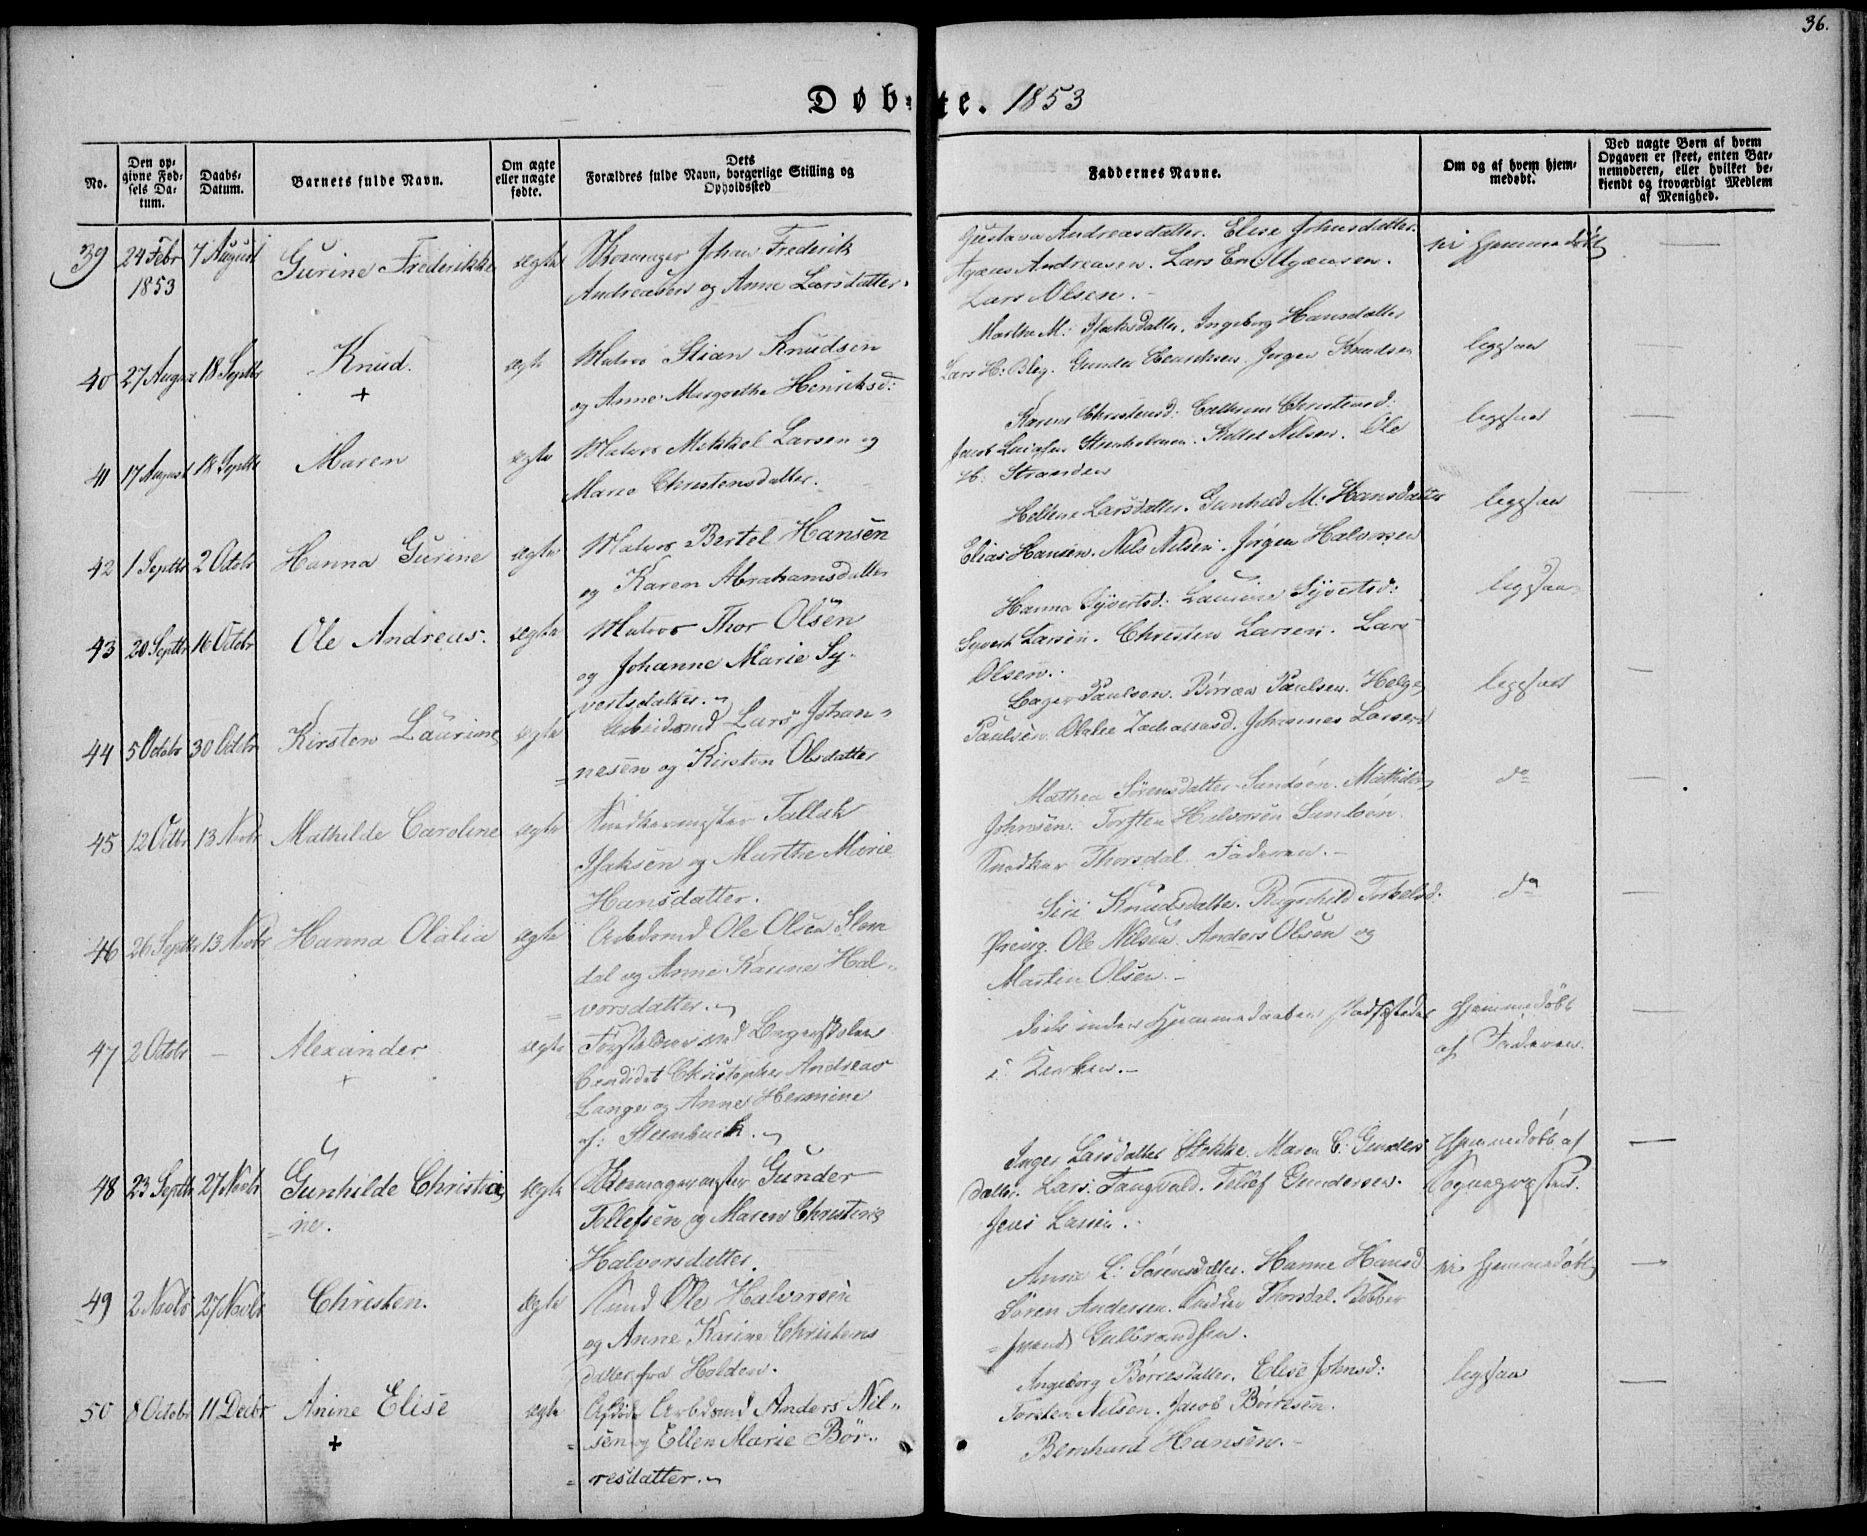 36.
Døbte. 1853
No.
Den op-
givne Fød-
sels Da-
tum.
Daabs-
Datum.
Barnets fulde Navn.
Om ægte
eller uægte
fødte.
Dets
Forældres fulde Navn, borgerlige Stilling og
Opholdssted
Faddernes Navne.
Om og af hvem hjem-
medøbt.
Ved uægte Børn af hvem
Opgaven er skeet, enten Bar-
nemoderen, eller hvilket be-
kjendt og troværdigt Medlem
af Menighed.
39 24 Febr 1853 7 August Gurine Frederikke ægte
Skomager Johan Frederik
Andreasen og Anne Larsdatter.
Gustava Andreasdatter. Elise Johnsdatter.
Andreasen. Lars
Lars Olsen.
hjemmedøbt
40 27 August 18 Septbr Knud. + ægte
Matros Stian Knudsen
og Anne Margrethe Henriksd:
Marthe M: Isaksdatter. Ingeborg Hansdatter
Lars H: Gunder Henriksen. Jørgen Knudsen
ligesaa
41 17 August 18 Septbr Maren ægte
Matros Mikkel Larsen og
Maren Christensdatter.
Karen Christensd: Cathrine Christensd:
Jacob Kittel Nilsen. Ole
H: Stranden
ligesaa
42 1 Septbr 2 Octobr Hanna Gurine ægte
Matros Bertel Hansen
og Karen Abrahamsdatter
Hellene Larsdatter. Gunhild M: Hansdatter
Elias Hansen. Nils Nilsen. Jørgen Halvorsen
ligesaa
43 20 Septbr 16 Octobr Ole Andreas. ægte
Matros Thor Olsen
og Johanne Marie Sy-
vertsdatter.
Hanna Syvertsd: Laurine Syvertsd:
Syvert Larsen. Christen Larsen. Lars
Olsen.
ligesaa
44 5 Octobr 30 Octobr Kirsten Laurine ægte
Arbeidsmd Lars Johan-
nesen og Kirsten Olsdatter
Paulsen. Børre Paulsen. Helge
Paulsen. Olalie Zachariasd. Johannes Larsen
ligesaa
45 12 Octbr 13 Novbr Mathilde Caroline ægte
Snedkermester Tallak
Isaksen og Marthe Marie
Hansdatter.
Mathea Sørensdatter Sundøen. Mathilde
Johnsen. Torsten Halvorsen Sundøen.
Snedker Thorsdal. Faderen.
do
46 26 Septbr 13 Novbr Hanna Olalia ægte
Arbdsmd Ole Olsen Slem
dal og Anne Karine Hal-
vorsdatter.
Siri Knudsdatter. Ragnhild Torkelsd.
Ole Nilsen. Anders Olsen og
Martin Olsen.
do
47 2 Octobr - Alexander + ægte
Forstander ved Borgerskolen
Candidat Christopher Andreas
Lange og Anne Hermine
f: Steenbuch.
døde inden Hjemmedaaben stadfæstedes
i Kirken.
Hjemmedøbt
af Faderen.
48 23 Septbr 27 Novbr Gunhilde Christia-
ne. ægte
Skomagermester Gunder
Tollefsen og Maren Christine
Halvorsdatter.
Inger Larsdatter Stokke. Maren C: Gunders
datter. Lars Tangvald. Tollef Gundersen.
Jens Larsen.
Hjemmedøbt af
Sognepræsten.
49 2 Novbr 27 Novbr Christen. ægte
Smed Ole Halvorsen
og Anne Karine Christens
datter fra Holden.
Anne L: Sørensdatter. Hanne Hansd
Søren Andersen. Snedker Thorsdal. Kobber
smed Gulbrandsen.
hjemmedøbt
50 8 Octobr 11 Decbr Anine Elise + ægte
Afdøde Arbdsmd Anders Nil-
sen og Ellen Marie Bør-
resdatter.
Ingeborg Børresdatter. Elise Johnsd:
Torsten Nilsen. Jacob Børresen.
Bernhard Hansen.
ligesaa